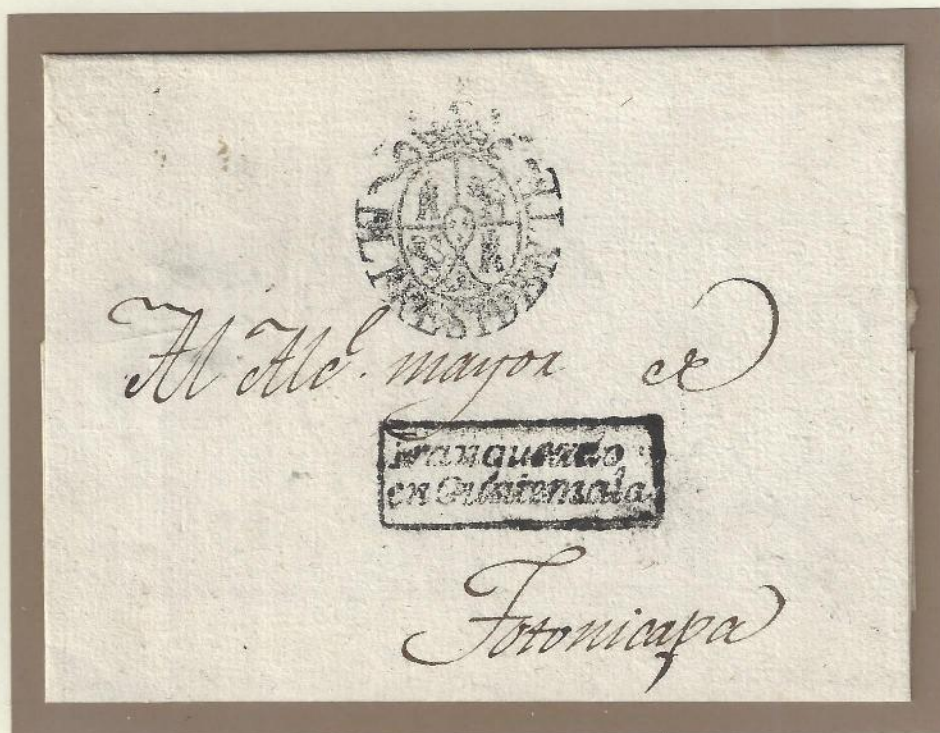 EL PRESIDENTE
Al Alcᵉ. mayor de
Franqueado
en Guatemala
Totonicapa